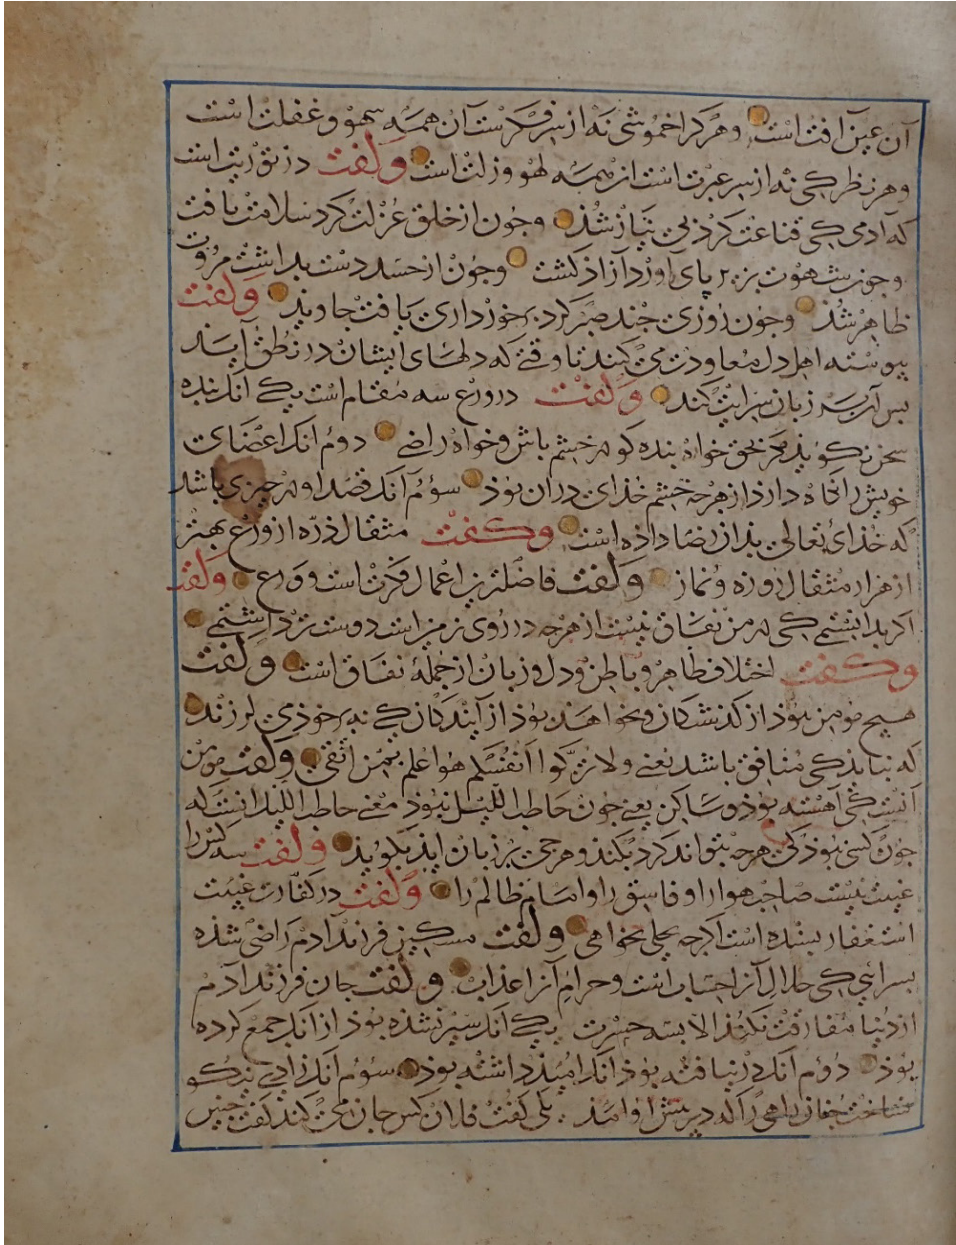 آن عین آفت است و هر کرا خموشی نه از سر فکرست آن همه سهو و غفلت است
و هر نظر کی نه از سر عبرت است از همه لهو و زلت است و گفت در توریت است
که آدمی کی قناعت کرد بی نیاز شد و چون از خلق عزلت کرد سلامت یافت
و چون شهوت بزیر پای آورد آزاد گشت و چون از حسد دست بداشت مروت
ظاهر شد و چون روزی چند صبر کرد برخورداری یافت جاوید و گفت
پیوسته اهل دل معاودت می کنند تا وقتی که دلهای ایشان در نطق آید
پس آن بر زبان سرایت کند و گفت در ورع سه مقام است یکی آنک بنده
سخن نگوید مگر بحق خواه بنده کو در خشم باش و خواه راضی دوم آنک اعضای
خویش را نگاه دارد از هرچه خشم خدای در آن بود سوم آنک قصد او در چیزی باشد
که خدای تعالی بدان رضا داده است و گفت مثقال ذره از ورع بهتر
از هزار مثقال روزه و نماز و گفت فاضلترین اعمال فکرت است و ورع و گفت
اگر بدانستمی کی در من نفاق نیست از هرچه در روی زمین است دوست تر داشتمی
و گفت اختلاف ظاهر و باطن و دل و زبان از جمله نفاق است و گفت
هیچ مومن نبود از گذشتگان و نخواهند بود از آیندگان کی نه بر خود می لرزند
که نباید کی منافق باشد یعنی ولا تزکوا انفسکم هو اعلم بمن اتقی و گفت مومن
آنست کی آهسته بود و ساکن یعنی چون حاطب اللیل نبود معنی حاطب اللیل آنست که
چون کسی نبود کی هرچه بتواند کرد بکند و هرچه بر زبان آید بگوید و گفت سه کس را
غیبت نیست صاحب هوا را و فاسق را و امام ظالم را و گفت در کفارت غیبت
استغفار بسنده است اگرچه بحلی نخواهی و گفت مسکین فرزند آدم راضی شده
بسرائی کی حلال آنرا حساب است و حرام آنرا عذاب و گفت جان فرزند آدم
از دنیا مفارقت نکند الا بسه حسرت یکی آنک سیر نشده بود از آنک جمع کرده
بود دوم آنک در نیافته بود آنک امید داشته بود سوم آنک زادی نیکو
نساخت چنان راهی را که در پیش او آمد یکی گفت فلان کس جان می کند گفت چنین